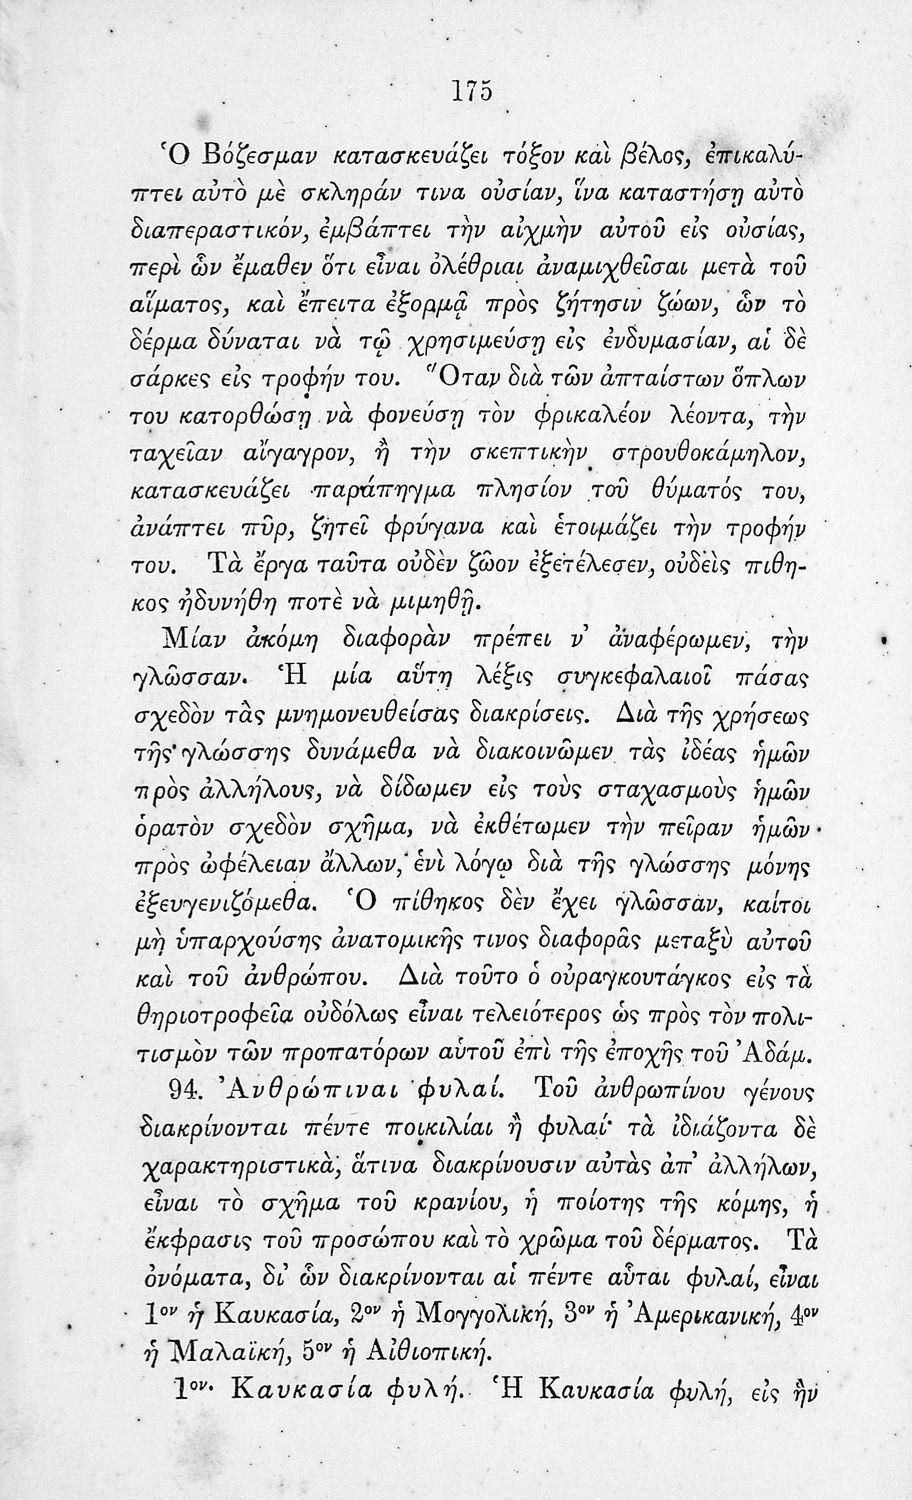 175
Ὁ Βόζεσμαν κατασκευάζει τόξον καὶ βέλος, ἐπικαλύ-
πτει αὐτὸ μὲ σκληράν τινα οὐσίαν, ἵνα καταστήσῃ αὐτὸ
διαπεραστικόν, ἐμβάπτει τὴν αἰχμὴν αὐτοῦ εἰς οὐσίας,
περὶ ὧν ἔμαθεν ὅτι εἶναι ὀλέθριαι ἀναμιχθεῖσαι μετὰ τοῦ
αἵματος, καὶ ἔπειτα ἐξορμᾷ πρὸς ζήτησιν ζώων, ὧν τὸ
δέρμα δύναται νὰ τῷ χρησιμεύσῃ εἰς ἐνδυμασίαν, αἱ δὲ
σάρκες εἰς τροφήν του. Ὅταν διὰ τῶν ἀπταίστων ὅπλων
του κατορθώσῃ νὰ φονεύσῃ τὸν φρικαλέον λέοντα, τὴν
ταχεῖαν αἴγαγρον, ἢ τὴν σκεπτικὴν στρουθοκάμηλον,
κατασκευάζει παράπηγμα πλησίον τοῦ θύματός του,
ἀνάπτει πῦρ, ζητεῖ φρύγανα καὶ ἑτοιμάζει τὴν τροφήν
του. Τὰ ἔργα ταῦτα οὐδὲν ζῶον ἐξετέλεσεν, οὐδεὶς πιθη-
κος ἠδυνήθη ποτὲ νὰ μιμηθῇ.
Μίαν ἀκόμη διαφορὰν πρέπει ν’ ἀναφέρωμεν, τὴν
γλῶσσαν. Ἡ μία αὕτη λέξις συγκεφαλαιοῖ πάσας
σχεδὸν τὰς μνημονευθείσας διακρίσεις. Διὰ τῆς χρήσεως
τῆς γλώσσης δυνάμεθα νὰ διακοινῶμεν τὰς ἰδέας ἡμῶν
πρὸς ἀλλήλους, νὰ δίδωμεν εἰς τοὺς σταχασμοὺς ἡμῶν
ὁρατὸν σχεδὸν σχῆμα, νὰ ἐκθέτωμεν τὴν πεῖραν ἡμῶν
πρὸς ὠφέλειαν ἄλλων, ἑνὶ λόγῳ διὰ τῆς γλώσσης μόνης
ἐξευγενιζόμεθα. Ὁ πίθηκος δὲν ἔχει γλῶσσαν, καίτοι
μὴ ὑπαρχούσης ἀνατομικῆς τινος διαφορᾶς μεταξὺ αὐτοῦ
καὶ τοῦ ἀνθρώπου. Διὰ τοῦτο ὁ οὐραγκουτάγκος εἰς τὰ
θηριοτροφεῖα οὐδόλως εἶναι τελειότερος ὡς πρὸς τὸν πολι-
τισμὸν τῶν προπατόρων αὑτοῦ ἐπὶ τῆς ἐποχῆς τοῦ Ἀδάμ.
94. Ἀνθρώπιναι φυλαί. Τοῦ ἀνθρωπίνου γένους
διακρίνονται πέντε ποικιλίαι ἢ φυλαί· τὰ ἰδιάζοντα δὲ
χαρακτηριστικὰ, ἅτινα διακρίνουσιν αὐτὰς ἀπ’ ἀλλήλων,
εἶναι τὸ σχῆμα τοῦ κρανίου, ἡ ποίοτης τῆς κόμης, ἡ
ἔκφρασις τοῦ προσώπου καὶ τὸ χρῶμα τοῦ δέρματος. Τὰ
ὀνόματα, δι’ ὧν διακρίνονται αἱ πέντε αὗται φυλαί, εἶναι
1ον ἡ Καυκασία, 2ον ἡ Μογγολική, 3ον ἡ Ἀμερικανική, 4ον
ἡ Μαλαϊκή, 5ον ἡ Αἰθιοπική.
1ον. Καυκασία φυλή. Ἡ Καυκασία φυλή, εἰς ἣν